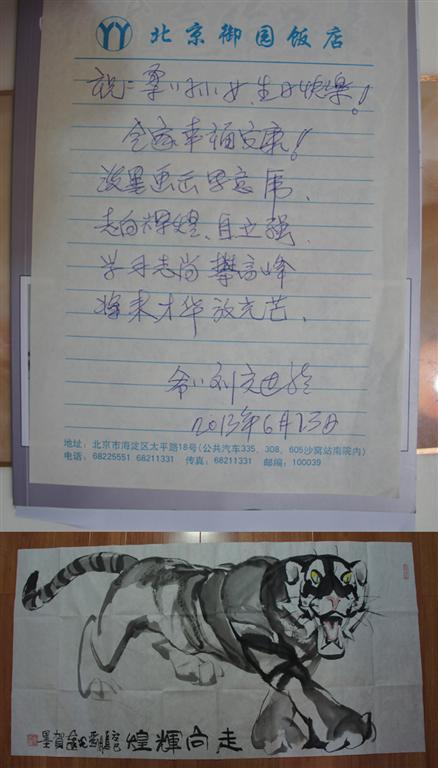 北京御园饭店
祝: 栗小孙女生日快乐!
全家幸福安康!
淡墨画画思意虎
走向辉煌、自立强
学子志尚攀高峰
将来才华放光芒.
2013年6月13日
地址: 北京市海淀区太平路18号(公共汽车335、308、605沙窝站南院内)
电话: 68225551 68211331 传真: 68211331 邮编: 100039
走向輝煌
賀墨